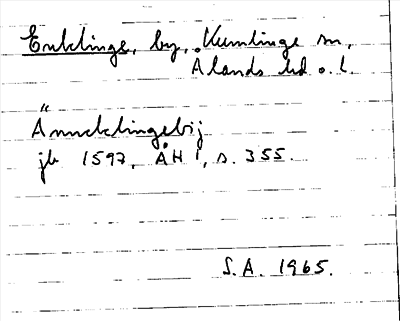 Enklinge, by, Kumlinge sn,
Ålands hd o. l.
"Ännucklingebÿ
jb 1597, ÅH I, s. 355.
S.A. 1965.